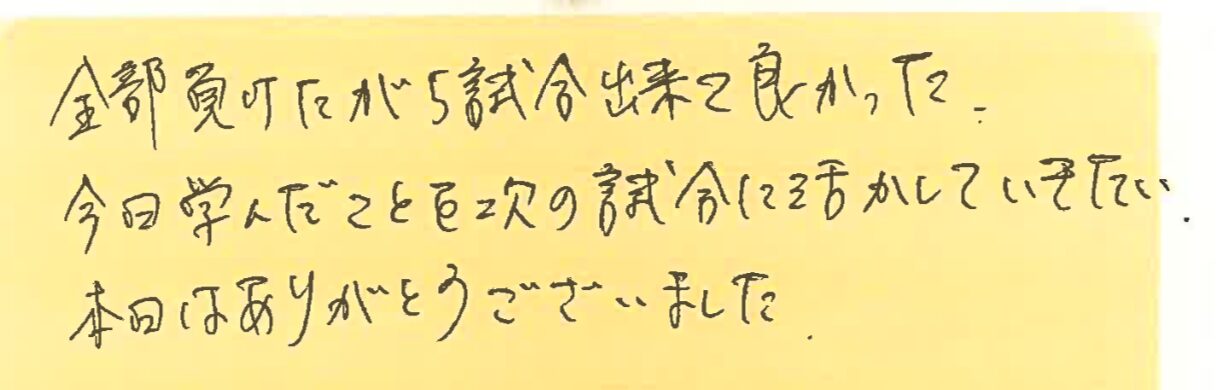 全部負けたが5試合出来て良かった.
今日学んだことを次の試合に活かしていきたい.
本日はありがとうございました.